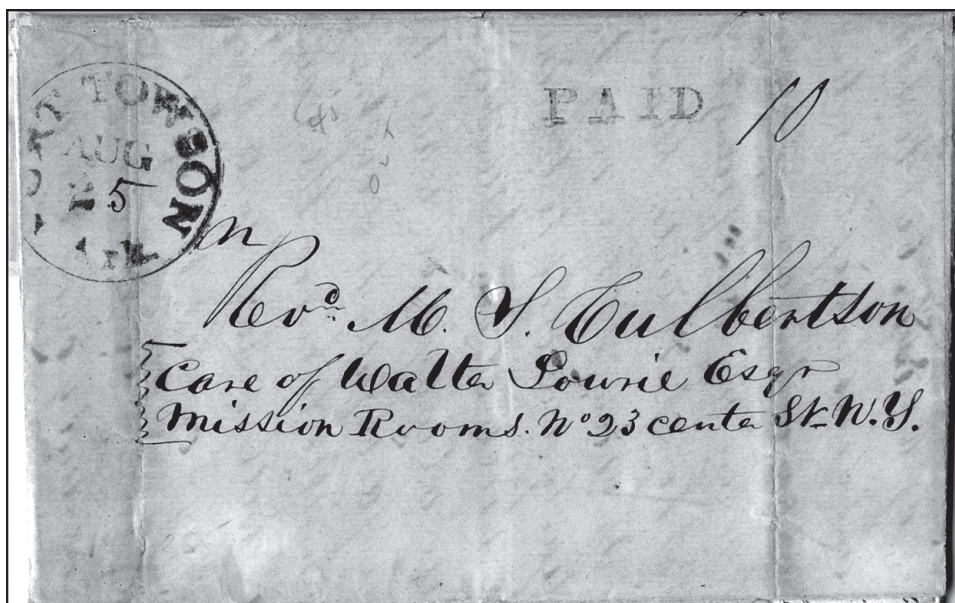 FORT TOWSON
AUG
5
PAID 10
Revd. M. S. Culbertson
Care of Walter Lowrie Esqr
Mission Rooms. No 23 Center St. N. Y.